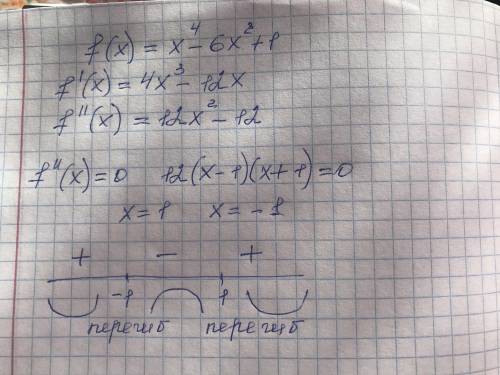 f(x) = x⁴ - 6x² + 1
f'(x) = 4x³ - 12x
f''(x) = 12x² - 12
f''(x) = 0 12(x-1)(x+1) = 0
x = 1 x = -1
+ - +
-1 1
перегиб перегиб